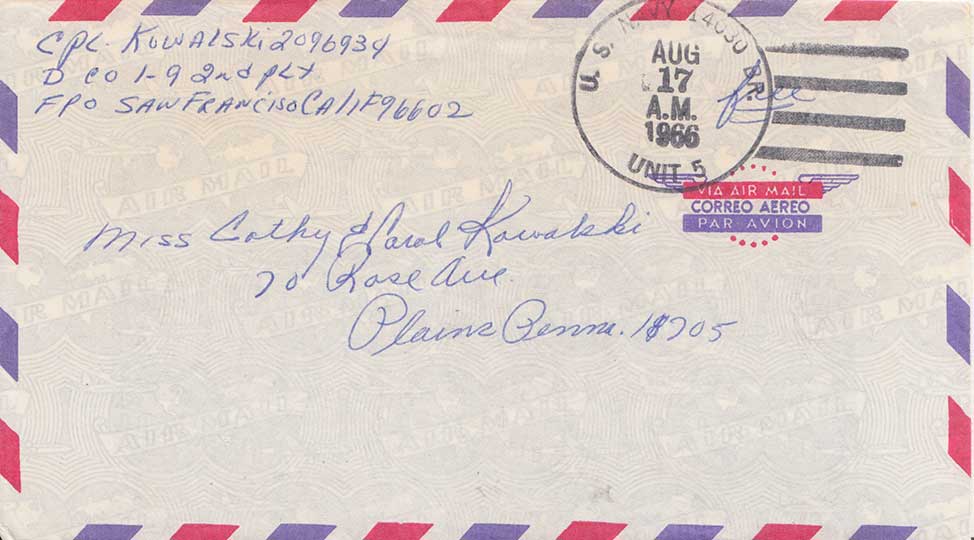 CPL. KOWALSKI 2096934
D CO 1-9 2nd PLT
FPO SAN FRANCISO CALIF 96602
U. S. NAVY 14030 BR.
AUG
17
A.M.
1966
UNIT 5
free
VIA AIR MAIL
CORREO AEREO
PAR AVION
Miss Cathy & Carol Kowalski
70 Rose Ave.
Plains Penna. 18705
AIR MAIL
AIR MAIL
AIR MAIL
AIR MAIL
AIR MAIL
AIR MAIL